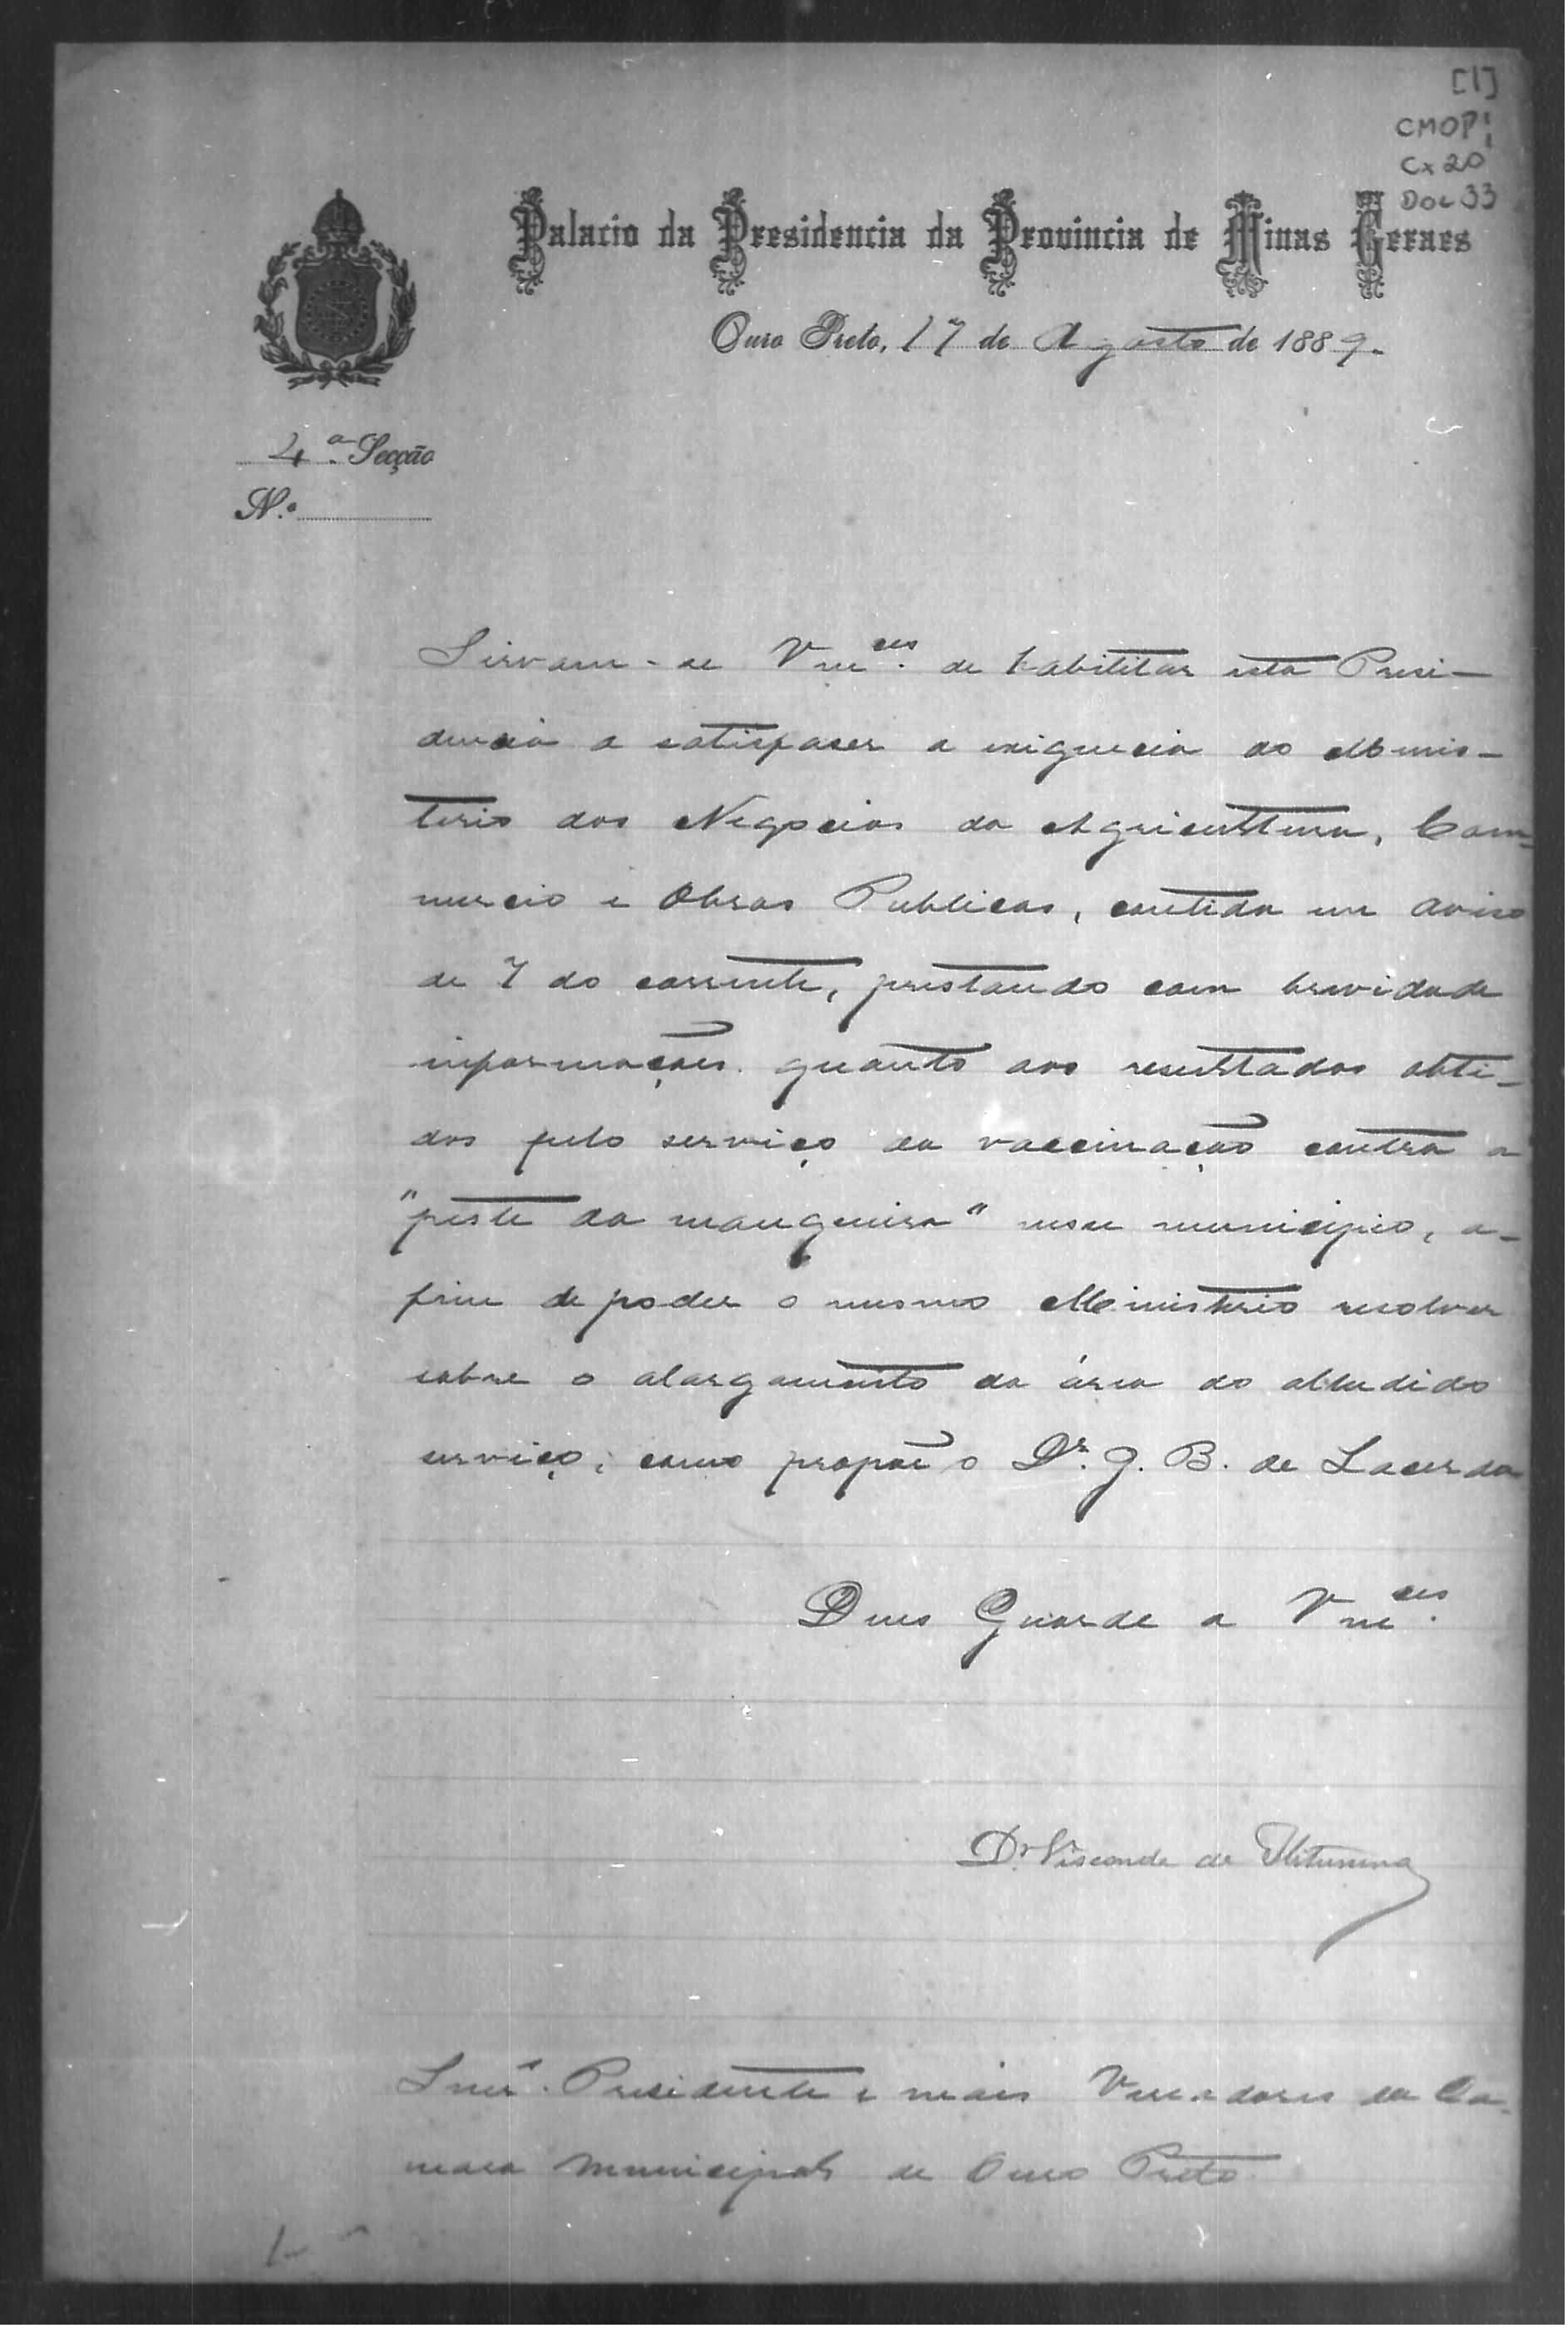 [1]
CMOP
Cx 20
Doc 33
Palacio da Presidencia da Provincia de Minas Geraes
Ouro Preto, 17 de Agosto de 1889.
4ª Secção
N.º
Sirvam-se Vmces. de habilitar esta Presi-
dencia a satisfaser a exigencia do Minis-
terio dos Negocios da Agricultura, Com-
mercio e Obras Publicas, contida em aviso
de 7 do corrente, prestando com brevidade
informações quanto aos resultados obti-
dos pelo serviço da vaccinação contra a
"peste da mangueira" nesse municipio, a-
fim de poder o mesmo Ministerio resolver
sobre o alargamento da área do alludido
serviço, como propõe o Dr. J. B. de Lacerda
Deus Guarde a Vmces.
Dr. Visconde de Ibituruna
Snrs. Presidente e mais Vereadores da Ca-
mara Municipal de Ouro Preto